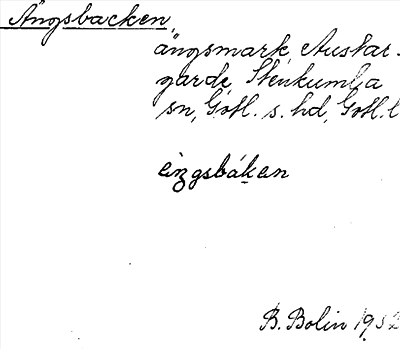 Ängsbacken,
ängsmark, Austar-
garde, Stenkumla
sn, Gotl. s. hd, Gotl. l
B. Bolin 1932